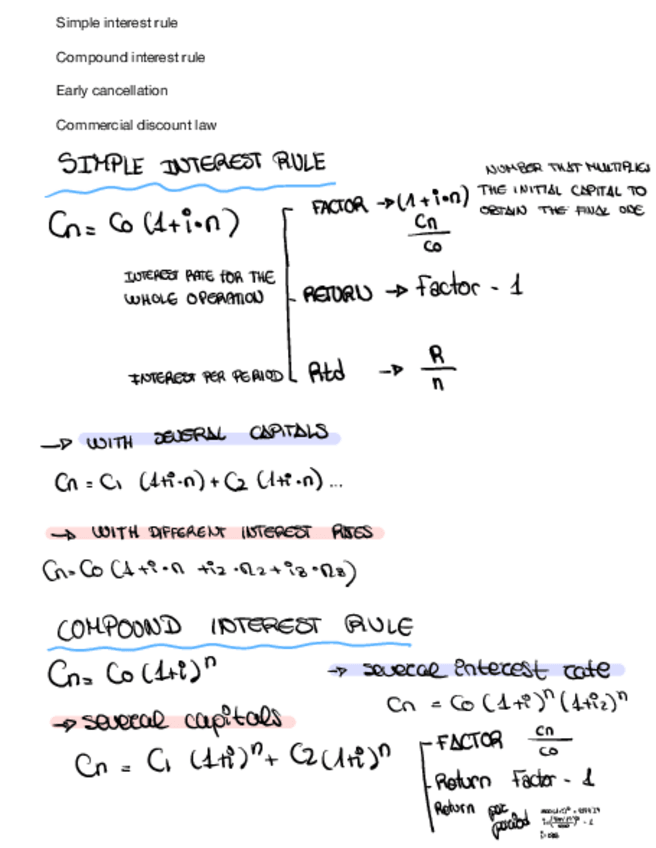 Simple interest rule
Compound interest rule
Early cancellation
Commercial discount law
SIMPLE INTEREST RULE
Cn = Co (1+i·n)
FACTOR → (1+i·n)
Cn
Co
NUMBER THAT MULTIPLIES
THE INITIAL CAPITAL TO
OBTAIN THE FINAL ONE
INTEREST RATE FOR THE
WHOLE OPERATION
RETURN → Factor - 1
INTEREST PER PERIOD
Rtd → R
n
→ WITH SEVERAL CAPITALS
Cn = C1 (1+i·n) + C2 (1+i·n) ...
→ WITH DIFFERENT INTEREST
Cn = Co (1+i·n +i2·n2+i3·n3)
COMPOUND INTEREST RULE
Cn = Co (1+i)ⁿ
→ several interest rate
Cn = Co (1+i)ⁿ (1+i2)ⁿ
→ several capitals
Cn = C1 (1+i)ⁿ + C2 (1+i)ⁿ
FACTOR cn
co
Return Factor - 1
Return per
period